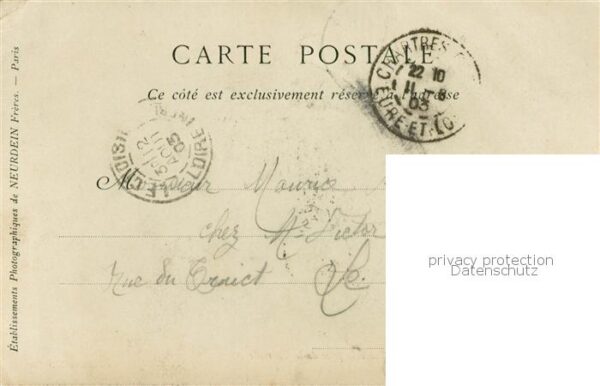 CARTE POSTALE
Ce côté est exclusivement réservé à l'adresse
CHARTRES
22 10
11 8
03
EURE-ET-LO
LE CROISIC
12
AOUT
03
LOIRE INFRE
Monsieur Maurice
chez Mr Victor
Rue du Traict Le
Établissements Photographiques de NEURDEIN Frères. — Paris
privacy protection
Datenschutz